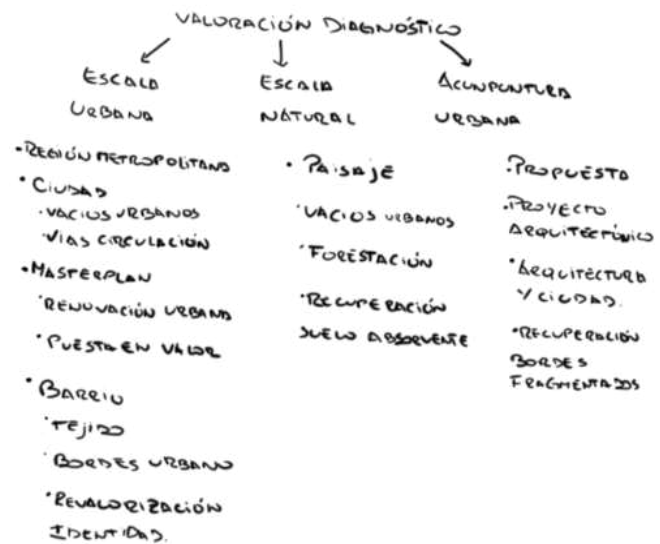 VALORACIÓN DIAGNÓSTICO
ESCALA
URBANA
• REGIÓN METROPOLITANA
• CIUDAD
• VACIOS URBANOS
• VIAS CIRCULACIÓN
• MASTERPLAN
• RENOVACIÓN URBANA
• PUESTA EN VALOR
• BARRIO
• TEJIDO
• BORDES URBANO
• REVALORIZACIÓN
IDENTIDAD.
ESCALA
NATURAL
• PAISAJE
• VACIOS URBANOS
• FORESTACIÓN
• RECUPERACIÓN
SUELO ABSORVENTE
ACUNPUNTURA
URBANA
• PROPUESTA
• PROYECTO
ARQUITECTÓNICO
• ARQUITECTURA
Y CIUDAD.
• RECUPERACIÓN
BORDES
FRAGMENTADOS